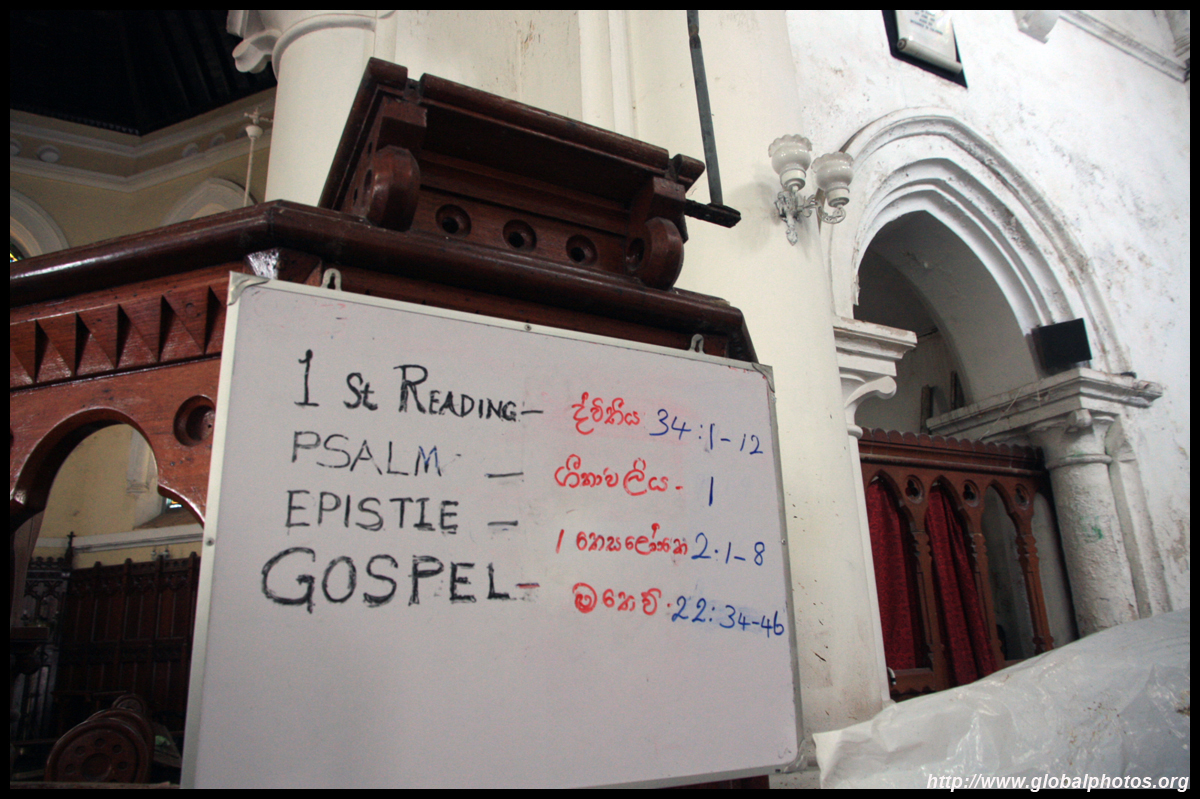 1 St READING - ද්විතීය 34:1-12
PSALM - ගීතාවලිය - 1
EPISTIE - 1 තෙසලෝනි 2.1-8
GOSPEL - මතෙව් . 22:34-46
http://www.globalphotos.org